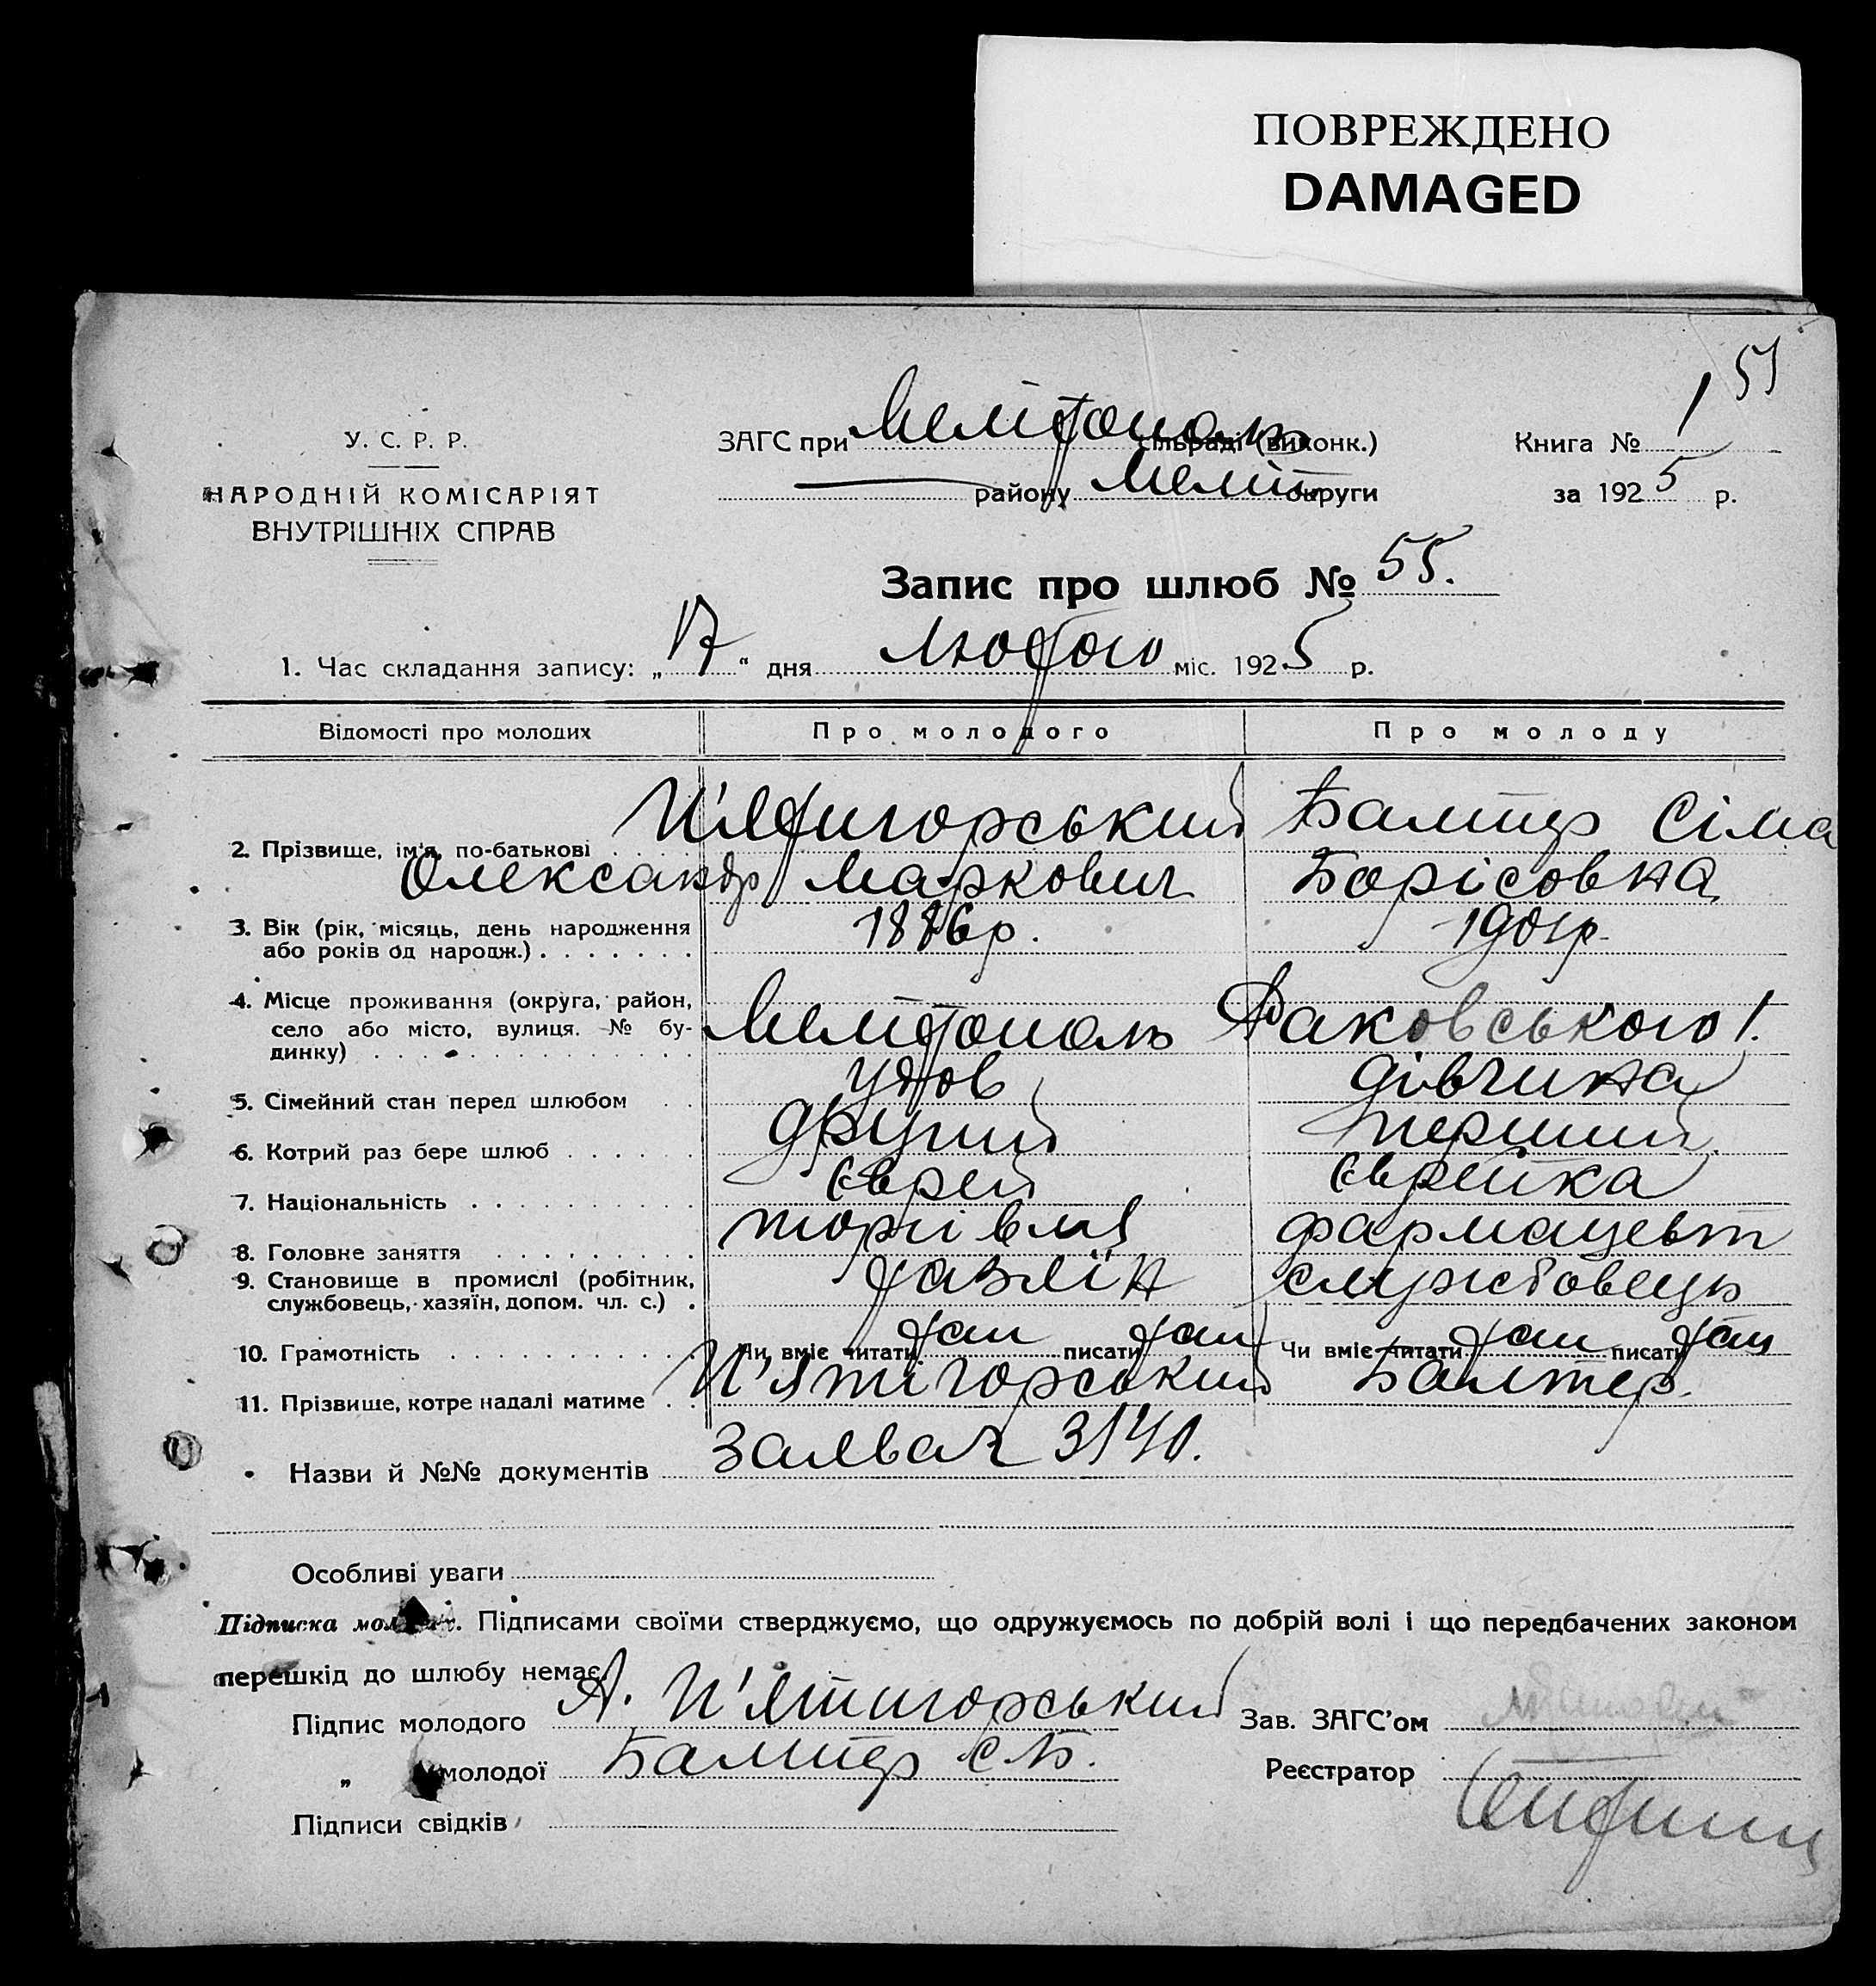 ПОВРЕЖДЕНО
DAMAGED
51
У. С. Р. Р.
НАРОДНІЙ КОМІСАРІЯТ
ВНУТРІШНІХ СПРАВ
ЗАГС при Мелітополь сільраді (виконк.)
району Меліт округи
Книга № 1
за 1925 р.
Запис про шлюб № 55.
1. Час складання запису: „17“ дня Лютого міс. 1925 р.
Відомості про молодих Про молодого Про молоду
2. Прізвище, ім'я, по-батькові П'ятигорський Балтер Сіма
Олександр Маркович Борісовна
3. Вік (рік, місяць, день народження
або років од народж.) 1886р. 1901р.
4. Місце проживання (округа, район,
село або місто, вулиця. № бу-
динку) Мелітополь Раковського 1.
5. Сімейний стан перед шлюбом удов дівчина
6. Котрий раз бере шлюб другий перший
7. Національність Єврей Єврейка
8. Головне заняття торгівля фармацевт
9. Становище в промислі (робітник,
службовець, хазяїн, допом. чл. с.) хазяїн службовець
10. Грамотність Чи вміє читати так писати так Чи вміє читати так писати так
11. Прізвище, котре надалі матиме П'ятігорський Балтер.
Назви й №№ документів 3140.
Особливі уваги
Підписка молодих. Підписами своїми стверджуємо, що одружуємось по добрій волі і що передбачених законом
перешкід до шлюбу немає.
Підпис молодого А. П'ятигорський Зав. ЗАГС'ом
„ молодої Балтер С.Б. Реєстратор
Підписи свідків